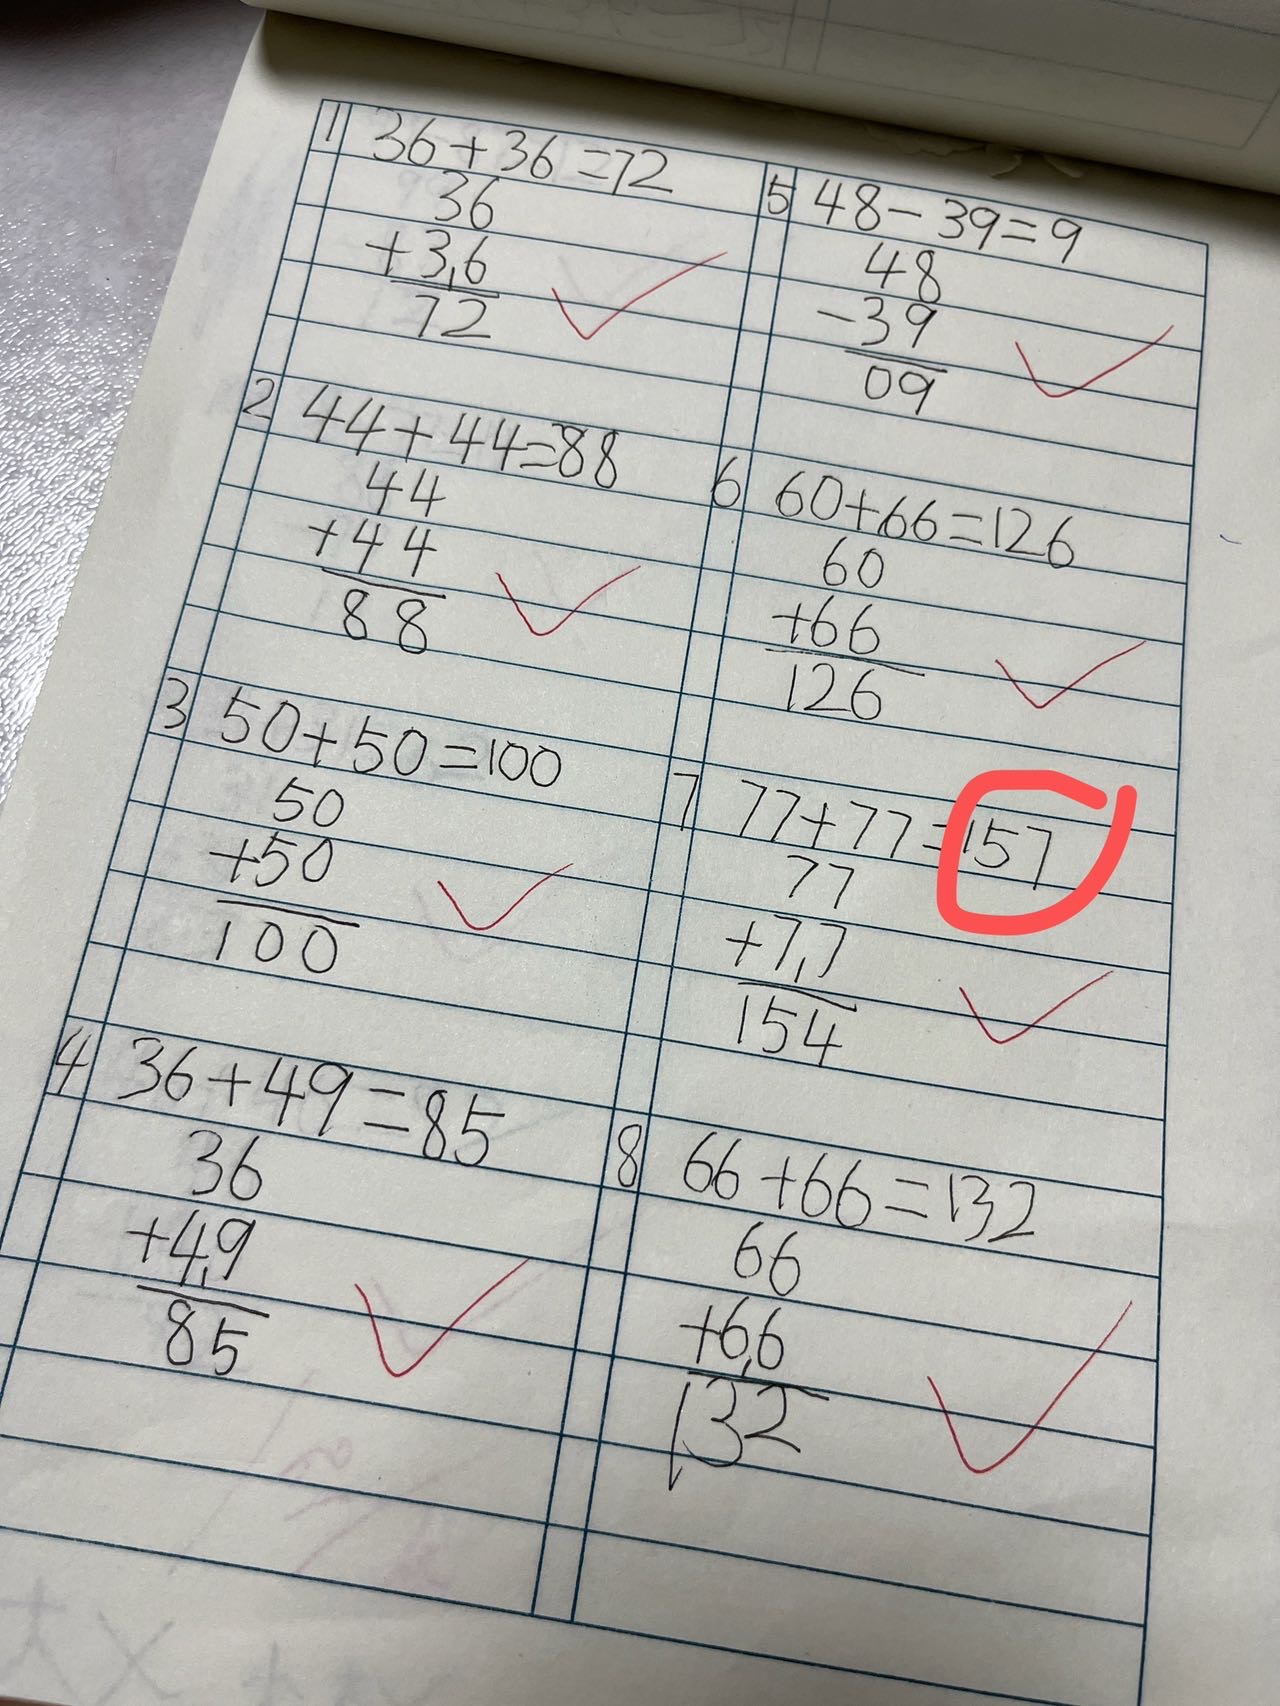 1 36+36=72
36
+36
72
2 44+44=88
44
+44
88
3 50+50=100
50
+50
100
4 36+49=85
36
+49
85
5 48-39=9
48
-39
09
6 60+66=126
60
+66
126
7 77+77=157
77
+77
154
8 66+66=132
66
+66
132